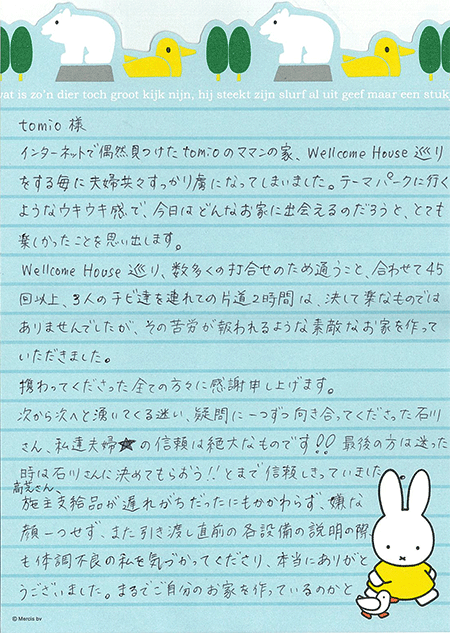 wat is zo'n dier toch groot kijk nijn, hij steekt zijn slurf al uit geef maar een stuk
tomio 様
インターネットで偶然見つけたtomioのママンの家、Wellcome House 巡り
をする毎に夫婦共々すっかり虜になってしまいました。テーマパークに行く
ようなウキウキ感で、今日はどんなお家に出会えるのだろうと、とても
楽しかったことを思い出します。
Wellcome House 巡り、数多くの打合せのため通うこと、合わせて45
回以上、3人のチビ達を連れての片道2時間は、決して楽なものでは
ありませんでしたが、その苦労が報われるような素敵なお家を作って
いただきました。
携わってくださった全ての方々に感謝申し上げます。
次から次へと湧いてくる迷い、疑問に一つずつ向き合ってくださった石川
さん、私達夫婦★の信頼は絶大なものです!! 最後の方は迷った
時は石川さんに決めてもらおう!!とまで信頼しきっていました
高芝さん、
施主支給品が遅れがちだったにもかかわらず、嫌な
顔一つせず、また引き渡し直前の各設備の説明の際
も体調不良の私を気づかってくださり、本当にありがと
うございました。まるでご自分のお家を作っているのかと
© Mercis bv